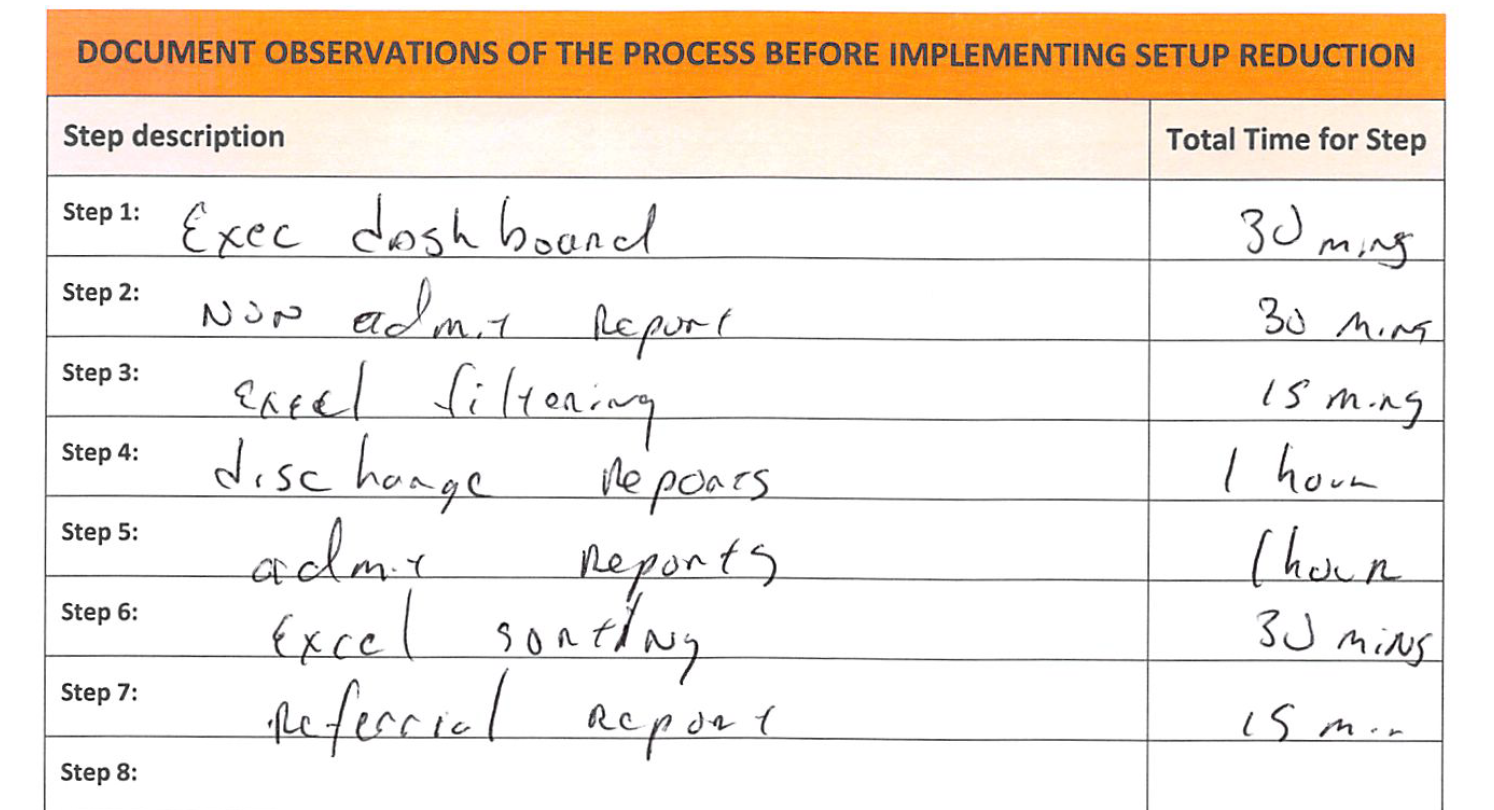 DOCUMENT OBSERVATIONS OF THE PROCESS BEFORE IMPLEMENTING SETUP REDUCTION
Step description Total Time for Step
Step 1: Exec dashboard 30 mins
Step 2: Non admit Report 30 mins
Step 3: Excel filtering 15 mins
Step 4: discharge Reports 1 hour
Step 5: admit Reports 1 hour
Step 6: Excel sorting 30 mins
Step 7: Referrial Report 15 min
Step 8: